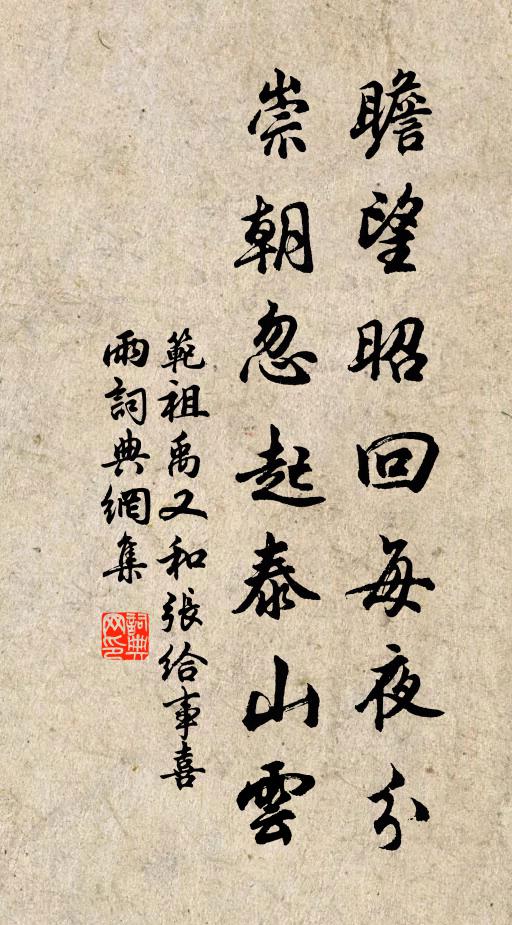 瞻望昭回每夜分
崇朝忽起泰山雲
範祖禹又和張給事喜
雨詞典網集
詞典
网印